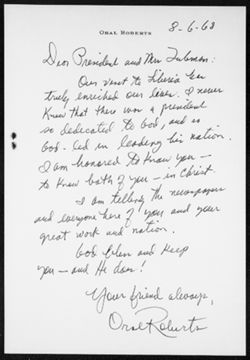 ORAL ROBERTS
8-6-63
Dear President and Mrs Tubman:
Our visit to Liberia has
truly enriched our lives. I never
knew that there was a president
so dedicated to God, and so
God-led in leading his nation.
I am honored to know you —
to know both of you — in Christ.
I am telling the newspapers
and everyone here of you, and your
great work and nation.
God bless and keep
you — and He does!
Your friend always,
Oral Roberts